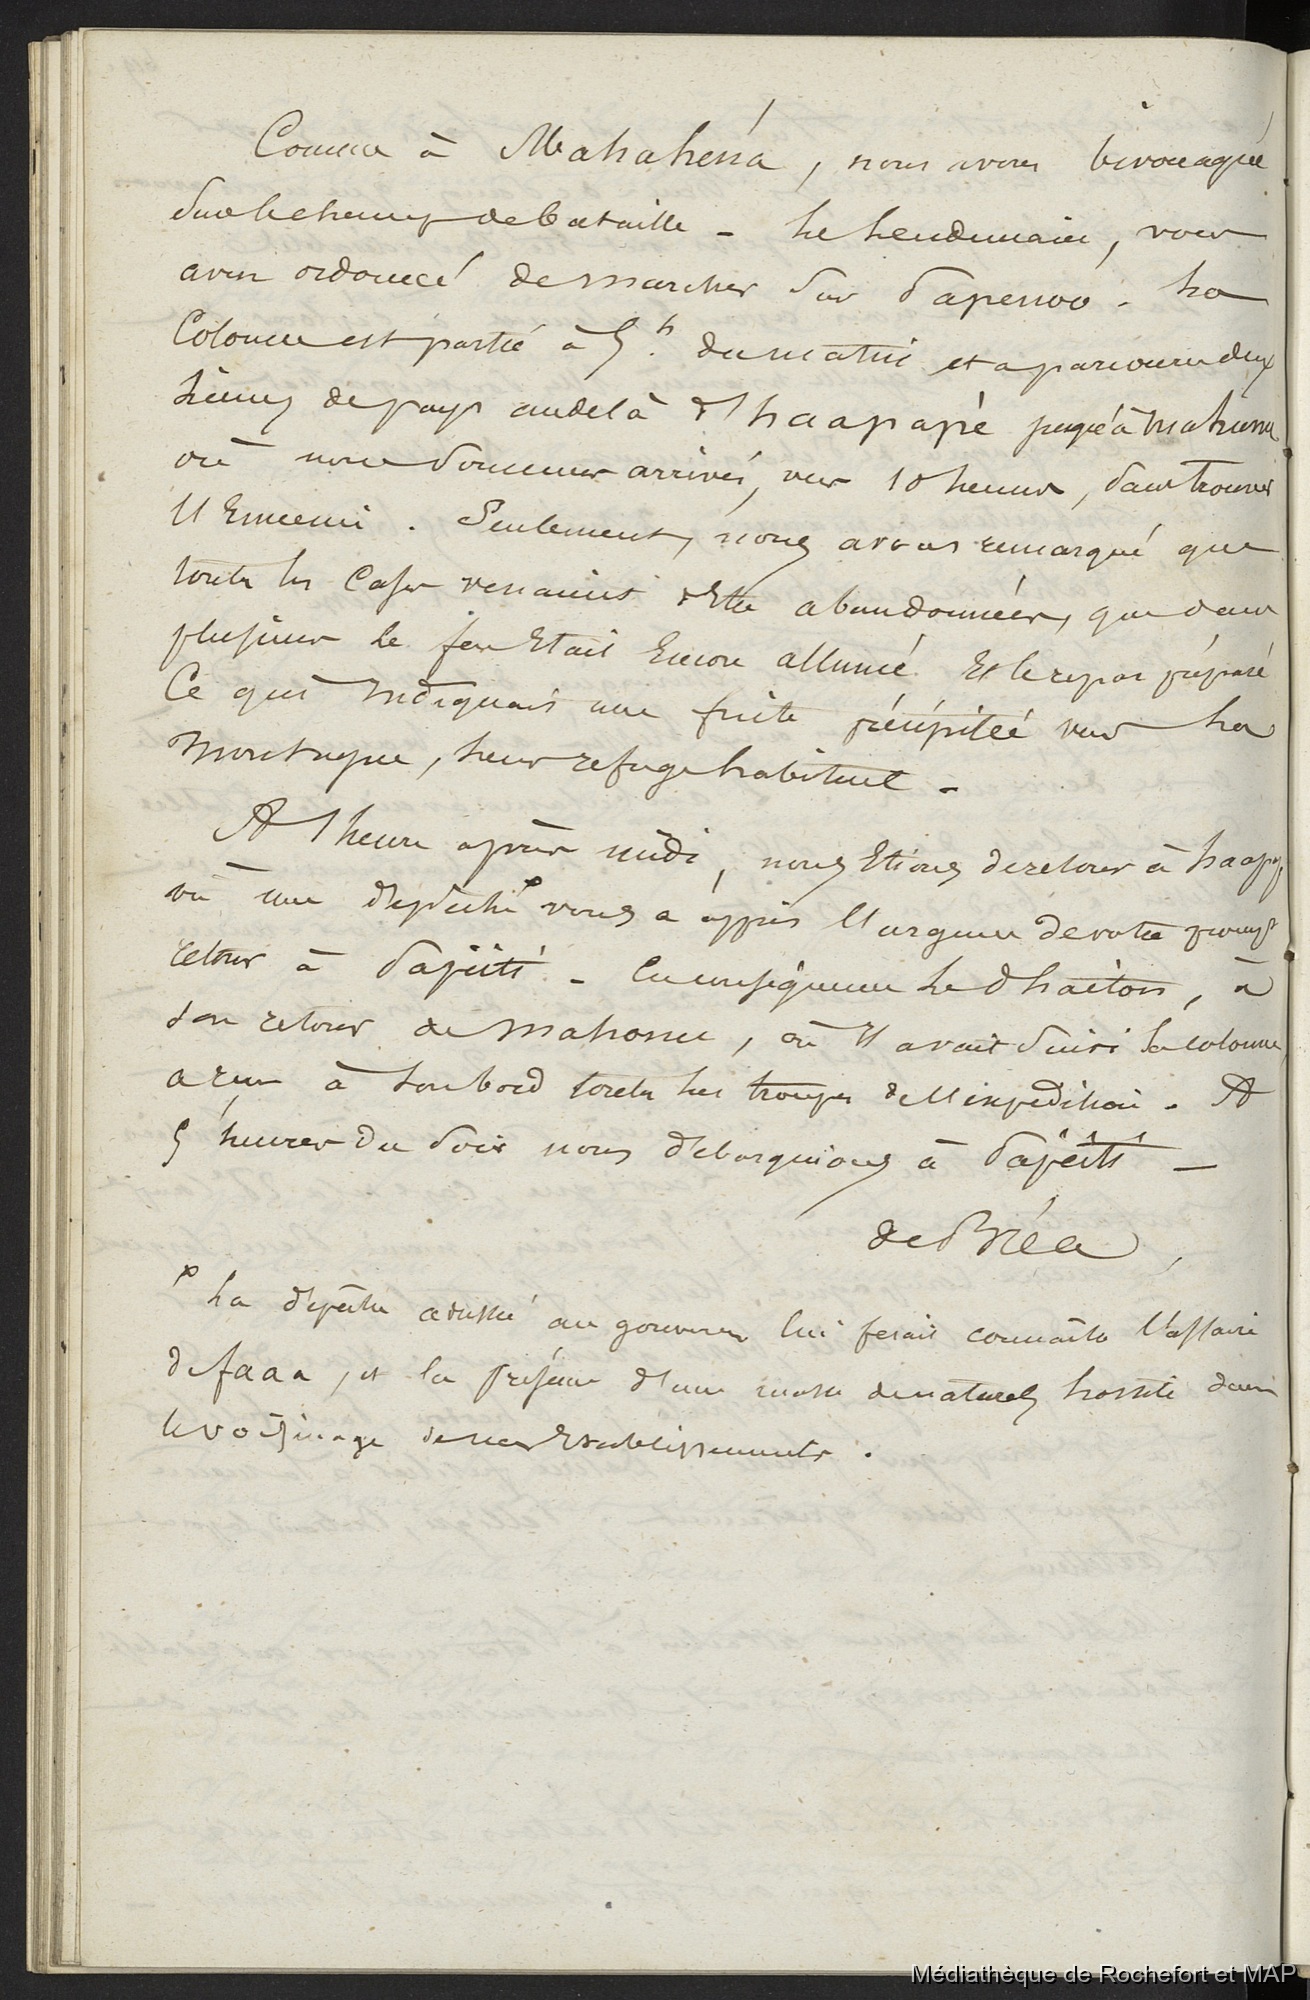 Comme à Mahahéna, nous avons bivouaqué
sur le champ de bataille - le lendemain, vous
avez ordonné de marcher sur Papenoo. La
Colonne est partie à 5.h du matin et a parcouru deux
lieues de pays au delà d'haapapé jusqu'à Mahonu
où nous sommes arrivés, vers 10 heures, sans trouver
l'Ennemi. Seulement, nous avons remarqué que
toutes les Cases venaient d'Etre abandonnées, que dans
plusieurs le feu Etait Encore allumé Et le repas préparé
Ce qui Indiquait une fuite précipitée vers la
Montagne, leur refuge habituel -
A 1 heure après midi, nous Etions de retour à haapapé
où une dépêche vous a appris l'urgence de votre prompt
retour à Papeïti - En conséquence le Phaéton, à
son retour de Mahonu, où Il avait suivi la colonne
a reçu à son bord toutes les troupes de l'expédition. A
5 heures du soir nous débarquions à Papéïti -
de Bréa,
La dépêche adressée au gouverneur lui fesait connaître l'affaire
de faaa, et la présence d'une masse de naturels hostile dans
le voisinage de nos Etablissements.
Médiathèque de Rochefort et MAP